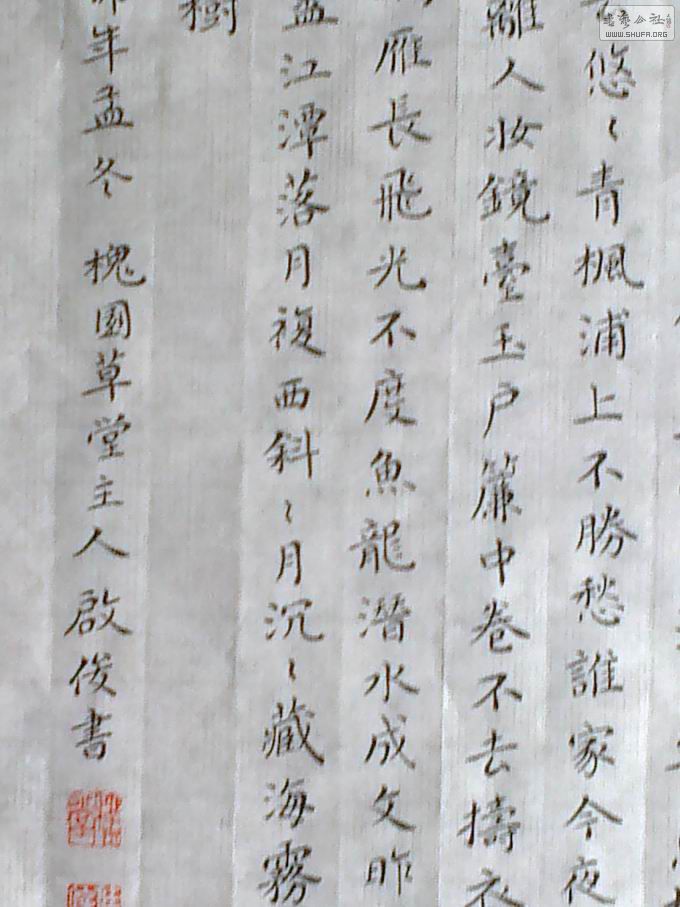 書藝公社
WWW.SHUFA.ORG
悠〻青楓浦上不勝愁誰家今夜
離人妆鏡臺玉户簾中卷不去擣衣
雁長飛光不度魚龍潛水成文昨
江潭落月複西斜〻月沉〻藏海霧
樹
年孟冬 槐園草堂主人啟俊書